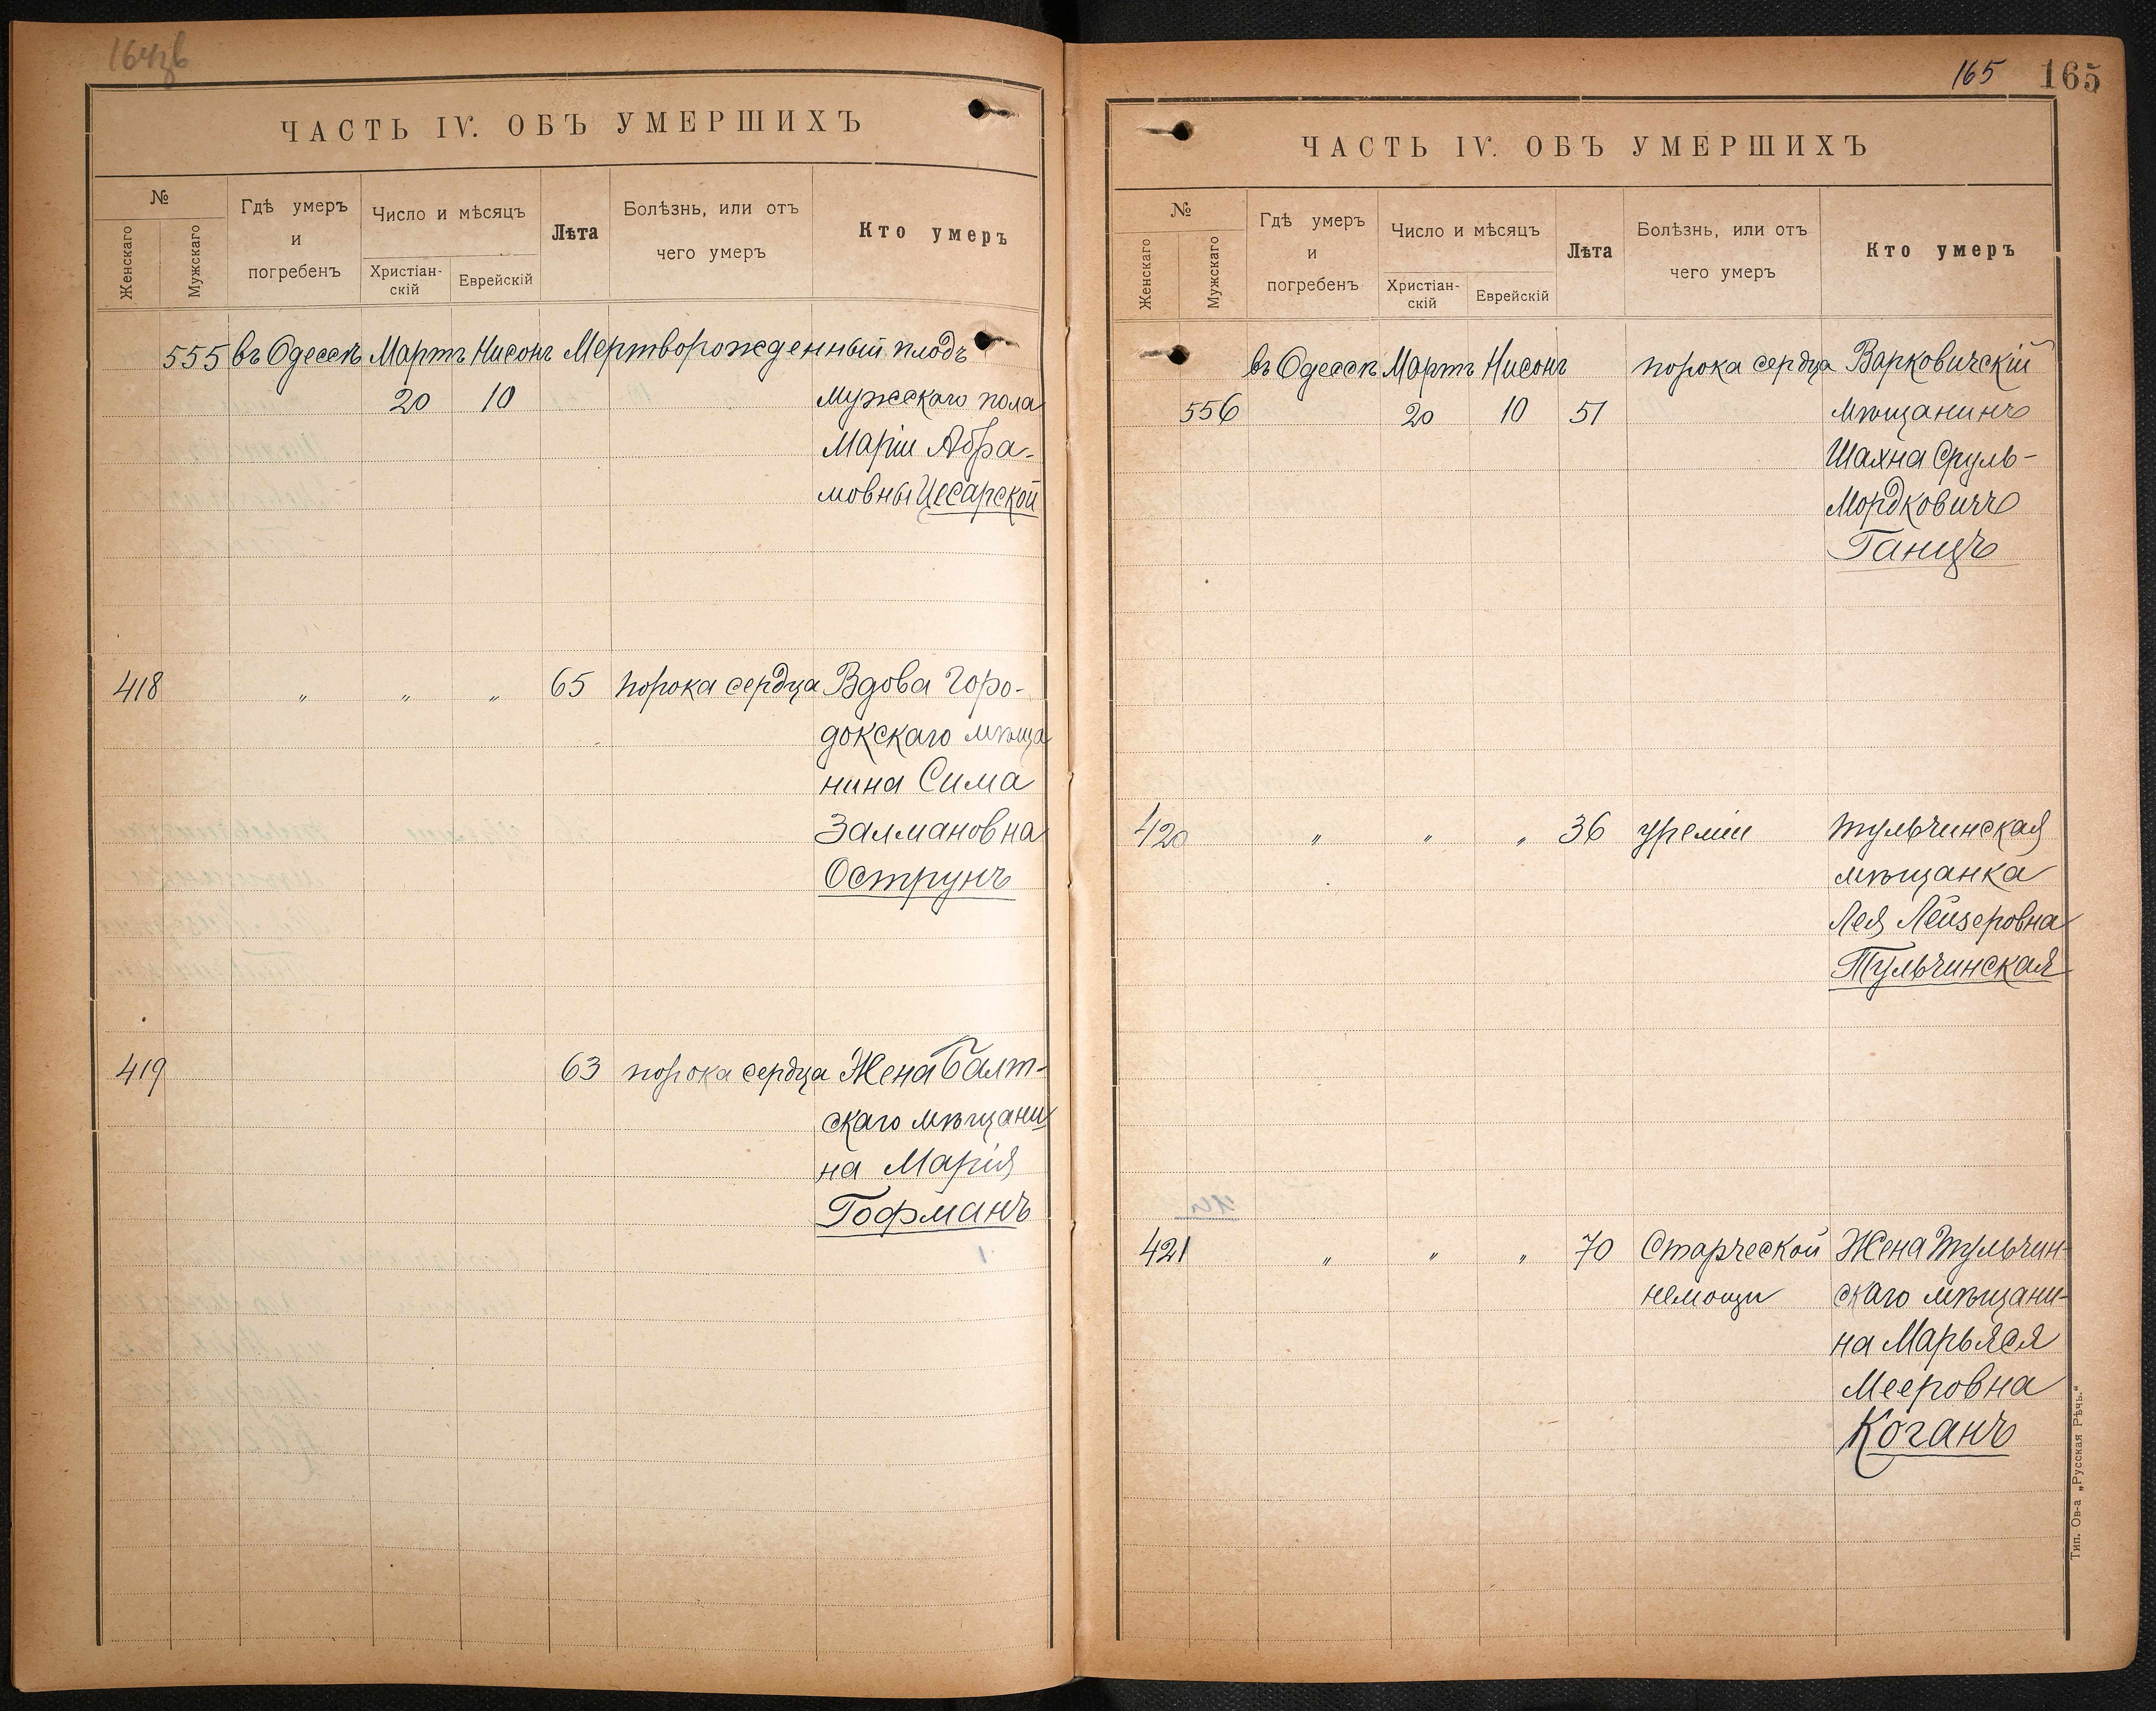 ЧАСТЬ IV. ОБЪ УМЕРШИХЪ
№
Женскаго
Мужскаго
Гдѣ умеръ
и
погребенъ
Число и мѣсяцъ
Христіан-
скій
Еврейскій
Лѣта
Болѣзнь, или отъ
чего умеръ
Кто умеръ
555 въ Одессѣ Мартъ Нисонъ Мертворожденный плодъ
20 10 Мужескаго пола
Маріи Абра-
мовны Цесарской
418 " " " 65 порока сердца Вдова Горо-
докскаго мѣща
нина Сима
Залмановна
Острунъ
419 63 порока сердца Жена Балт-
скаго мѣщани
на Марія
Гофманъ
165 165
ЧАСТЬ IV. ОБЪ УМЕРШИХЪ
№
Женскаго
Мужскаго
Гдѣ умеръ
и
погребенъ
Число и мѣсяцъ
Христіан-
скій
Еврейскій
Лѣта
Болѣзнь, или отъ
чего умеръ
Кто умеръ
въ Одессѣ Мартъ Нисонъ порока сердца Варковичскій
556 20 10 51 мѣщанинъ
Шахна Сруль-
Мордковичъ
Ганцъ
420 " " " 36 уреміи тульчинская
мѣщанка
Лея Лейзеровна
Тульчинская
421 " " " 70 Старческой Жена тульчин-
немощи скаго мѣщани-
на Марьяся
Мееровна
Коганъ
Тип. Ов-а „Русская Рѣчь."